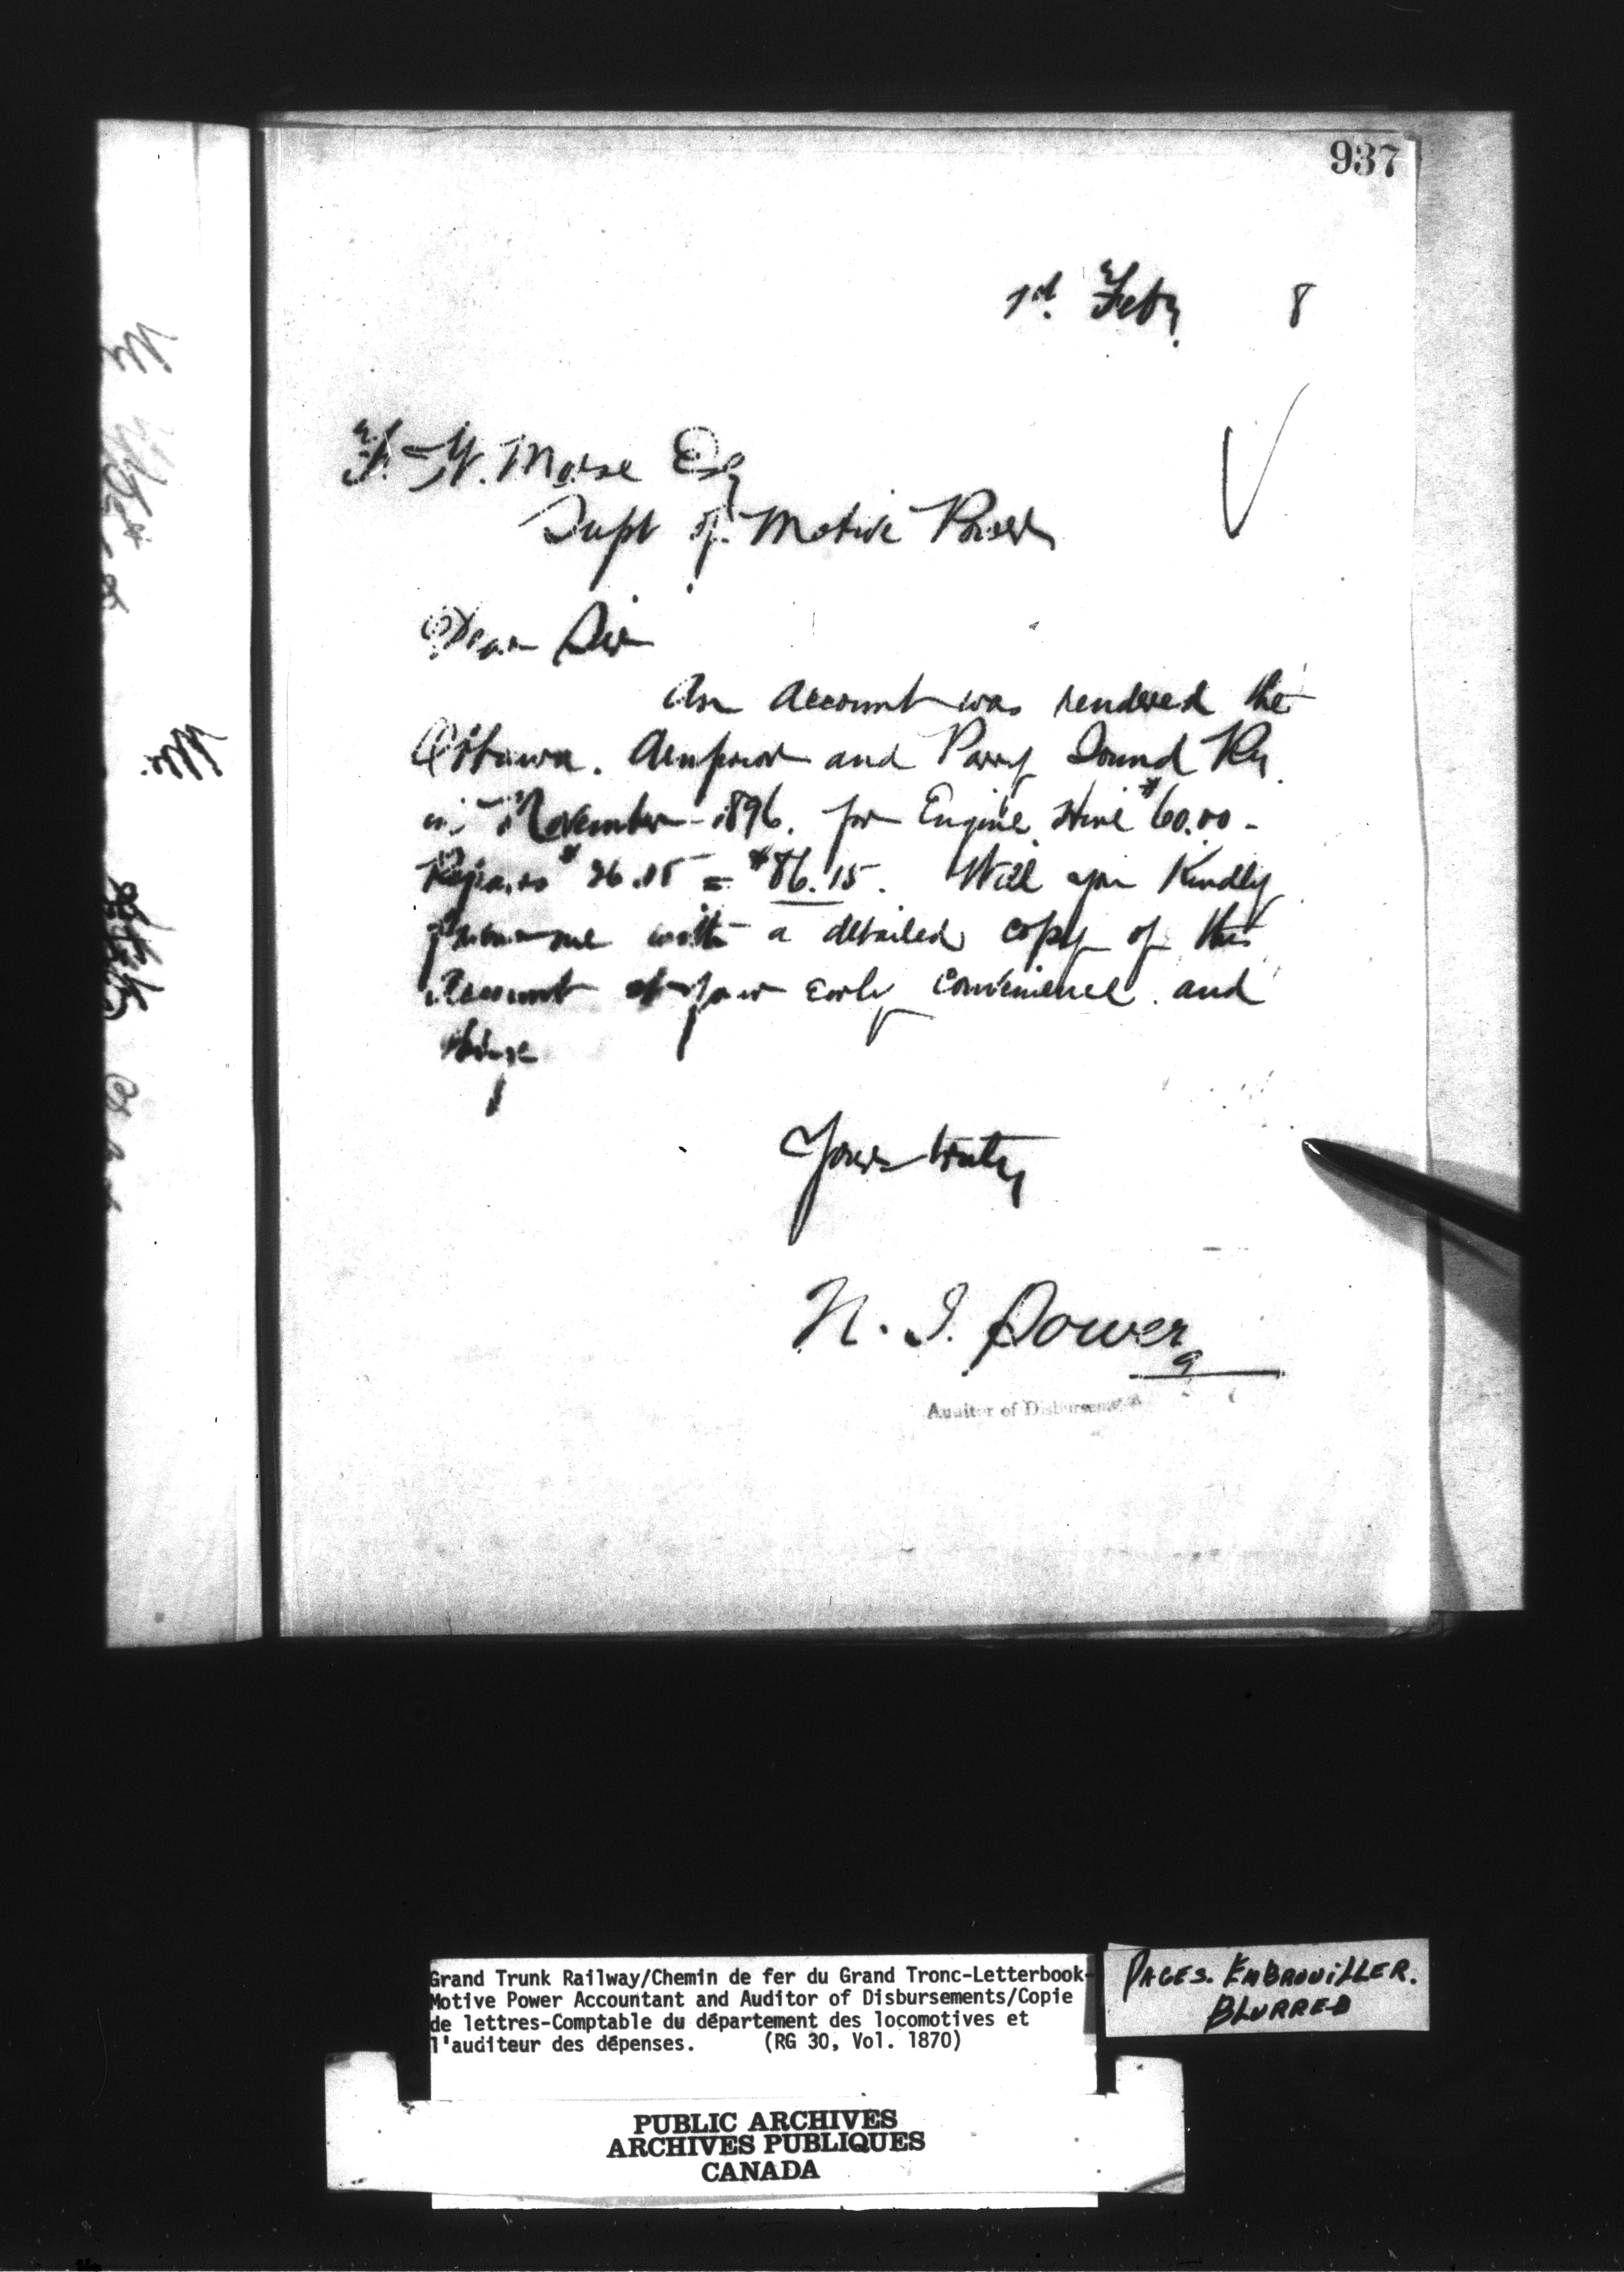 937
1st Feby 8
F. W. Morse Esq
Supt of Motive Power
Dear Sir
An Account was rendered the
Ottawa. Arnprior and Parry Sound Ry.
in November 1896. for Engine Hire $60.00 -
Repairs $26.15 = $86.15. Will you Kindly
me with a detailed copy of this
Account at your early convenience and
oblige
Yours truly
N. J. Power
Auditor of Disbursements
Grand Trunk Railway/Chemin de fer du Grand Tronc-Letterbook-
Motive Power Accountant and Auditor of Disbursements/Copie
de lettres-Comptable du département des locomotives et
l'auditeur des dépenses. (RG 30, Vol. 1870)
PAGES. EMBROUILLER.
BLURRED
PUBLIC ARCHIVES
ARCHIVES PUBLIQUES
CANADA